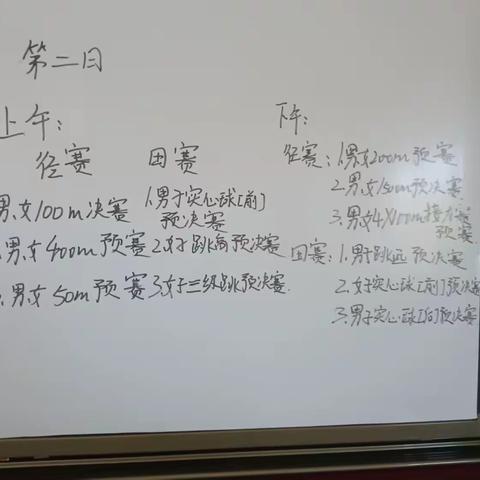 第二日
上午：
径赛
男.女100m决赛
男.女400m预赛
男.女50m预赛
田赛
1.男子实心球[前]
预决赛
2.女子跳高预决赛
3.女子三级跳预决赛.
下午：
径赛：1.男女200m预赛
2.男.女150m预决赛
3.男女4X100m接力赛
预赛
田赛：1.男子跳远预决赛
2.女子实心球[前]预决赛
3.男子实心球[向]预决赛